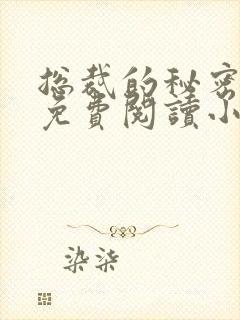 总裁的秘密
免費閱讀小
染柒